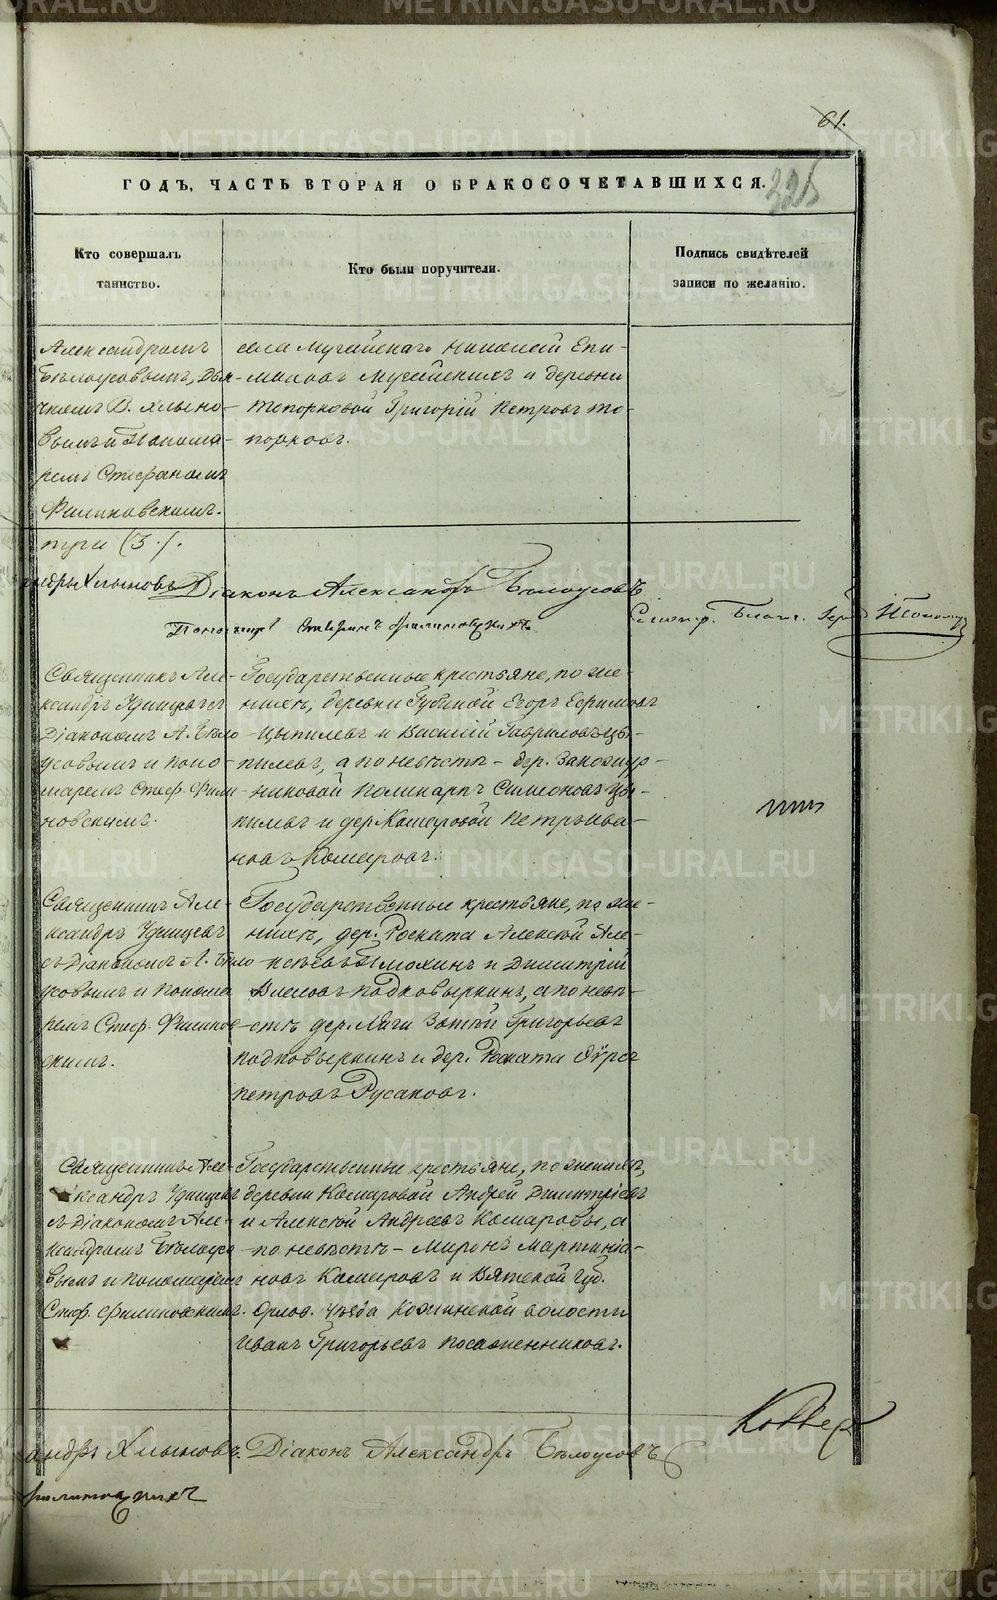 61.
325
ГОДЪ, ЧАСТЬ ВТОРАЯ О БРАКОСОЧЕТАВШИХСЯ.
Кто совершалъ
таинство.
Кто были поручители.
Подпись свидѣтелей
записи по желанію.
Александромъ
Бѣлоусовымъ, Дья-
чкомъ В. Хлыно-
вымъ и Понома-
ремъ Стефаномъ
Филиновскимъ.
села Мугайскаго Николай Епи-
Мугайскихъ и деревни
Топорковой Григорій Петровъ То-
порковъ.
три (3.).
Хлыновъ Діаконъ Александръ Бѣлоусовъ
Пономарь Стефанъ Филиновскихъ
Смотр. Благоч.
Священникъ Але-
ксандръ Удинцевъ съ
Діакономъ А. Бѣло
усовымъ и поно-
маремъ Стеф. Фили
новскимъ.
Государственные крестьяне, по же-
нихѣ, деревни Губиной Егоръ Ефимовъ
Цыпилевъ и Василій Гавриловъ Цы-
пилевъ, а по невѣстѣ - дер.
Поликарпъ Симеоновъ Цы-
пилевъ и дер. Комаровой Петръ Ива-
новъ Комаровъ.
Священникъ Але-
ксандръ Удинцевъ
съ Діакономъ А. Бѣло
усовымъ и понома
ремъ Стеф. Филинов
скимъ.
Государственные крестьяне, по же-
нихѣ, дер. Роската Алексѣй Але-
ксѣевъ Тимохинъ и Димитрій
Власовъ Подковыркинъ, а по невѣ-
стѣ дер. Ляги Зотѣй Григорьевъ
Подковыркинъ и дер. Роската
Петровъ Русаковъ.
Священникъ Але-
ксандръ Удинцевъ
съ Діакономъ Але-
ксандромъ Бѣлоусо
вымъ и пономаремъ
Стеф. Филиновскимъ.
Государственные крестьяне, по женихѣ,
деревни Комаровой Андрей Димитріевъ
и Алексѣй Андреевъ Комаровы, а
по невѣстѣ - Миронъ Мартиніа-
новъ Комаровъ и Вятской Губ.
Орлов. Уѣзда волости
Иванъ Григорьевъ Посаженниковъ.
андръ Хлыновъ. Діаконъ Александръ Бѣлоусовъ
Филиновскихъ
METRIKI.GASO-URAL.RU